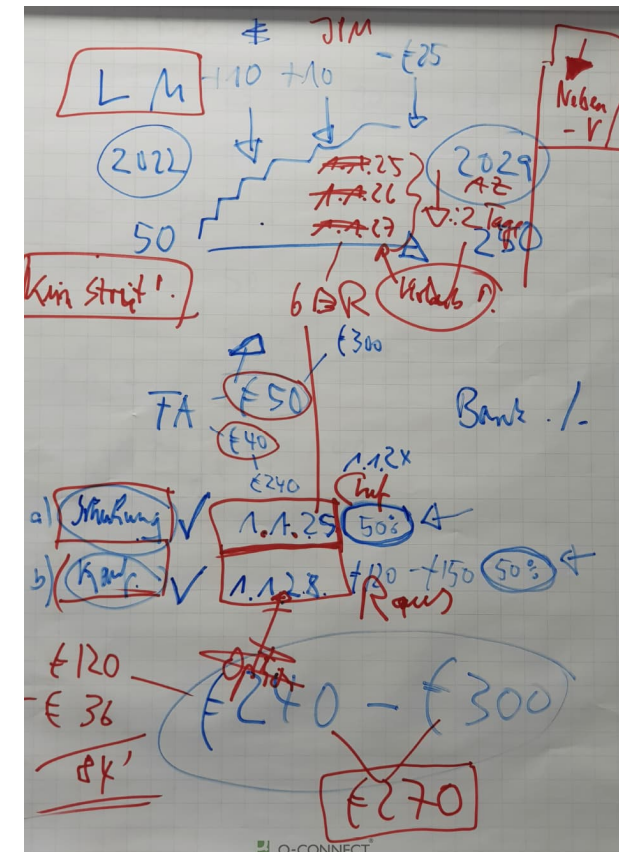 € JIM
LM +10 +10 - €25
Neben
- V
2022 1.1.25 2029
1.1.26 AZ
1.1.27 :2 Tage
50
Kein Streit!
6 Urlaub
€300
FA - €50 Bank ./-
- €40
€240 1.1.2x
Chef
a) Schenkung ✓ 1.1.25 50%
b) Kauf ✓ 1.1.28. €120 - €150 50%
Raus
Option
€120 €240 - €300
- € 36
84'
€270
Q-CONNECT